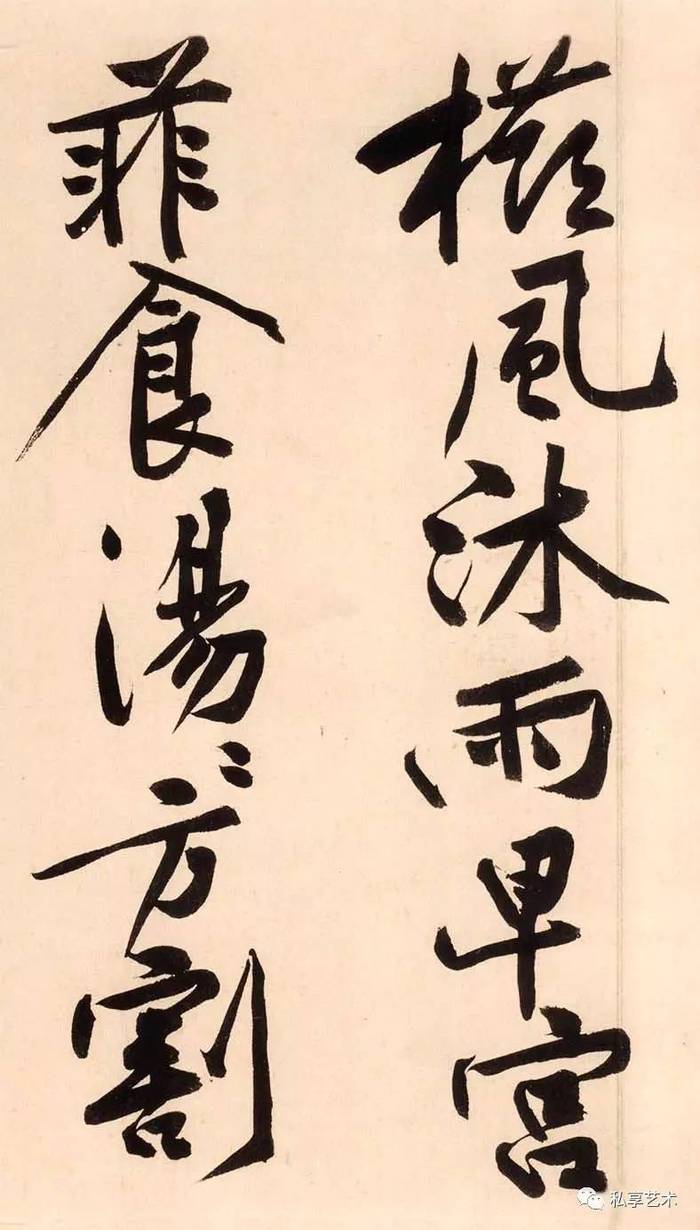 櫛風沐雨卑宮
菲食湯〻方割
私享艺术